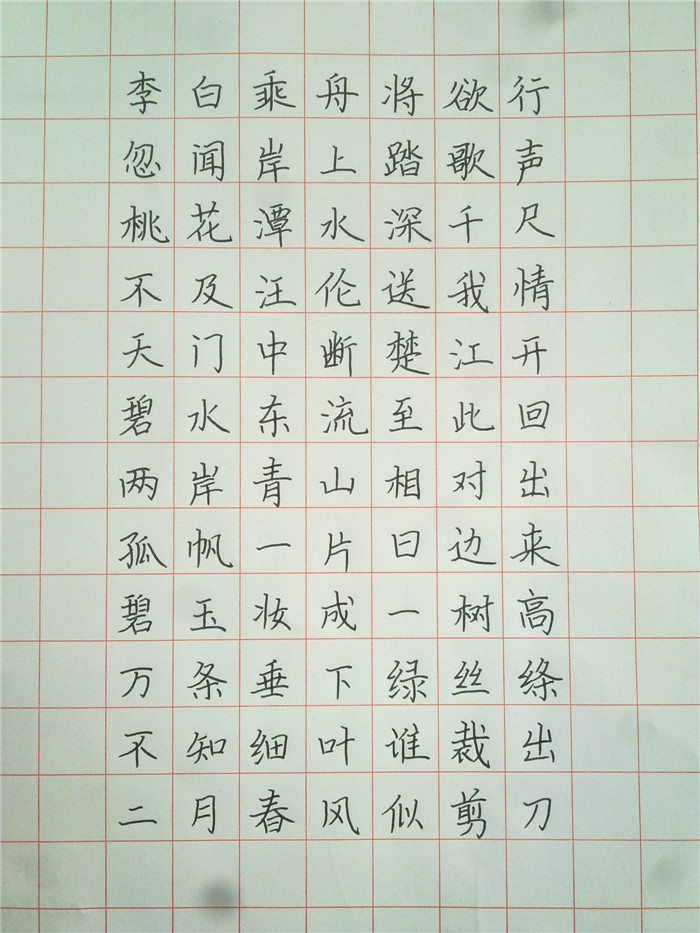 李白乘舟将欲行
忽闻岸上踏歌声
桃花潭水深千尺
不及汪伦送我情
天门中断楚江开
碧水东流至此回
两岸青山相对出
孤帆一片日边来
碧玉妆成一树高
万条垂下绿丝绦
不知细叶谁裁出
二月春风似剪刀